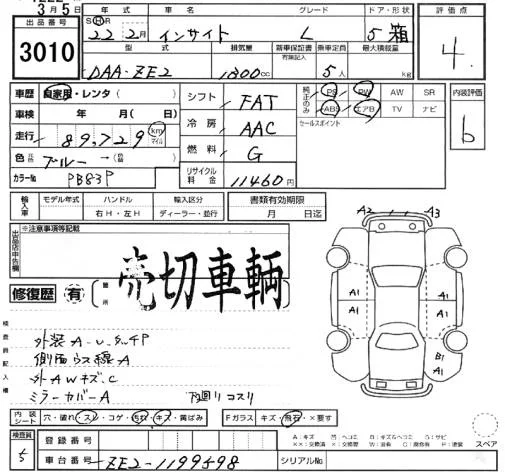 3月5日
出品番号 3010
年式 車名 グレード ドア・形状 評価点
S H R
22年2月 インサイト L 5 箱 4.
型式 排気量 新車保証書 乗車定員 最大積載量
有無記入
DAA-ZE2 1300cc 5人 kg
車歴 自家用・レンタ( )
シフト FAT
純正のみ PS PW AW SR
ABS エアB TV ナビ
内装評価 b
車検 年 月( 日)
冷房 AAC
セールスポイント
走行 89,729 km マイル
燃料 G
色 元色 ブルー → 色替( )
カラーNo PB83P
リサイクル料金 11460円
輸入車 モデル年式 ハンドル 輸入区分 書類有効期限
右H・左H ディーラー・並行 月 日迄
出品店申告欄 ※注意事項等記載
売切車輌
修復歴 有 箇所
A2 A3
A1 A1
A1 A1
B1
A1
検査員記入欄
外装A・U・タッチP
側面ウス線A
外AWキズ、C
ミラーカバーA 下回りコスリ
内装シート 穴・破れ・スレ・コゲ・汚れ・キズ・黄ばみ
Fガラス キズ・飛石・×要す
検査員 5
登録番号
車台番号 ZE2-1199598 シリアルNo
A:キズ U:ヘコミ B:キズ&ヘコミ S:サビ
スペア